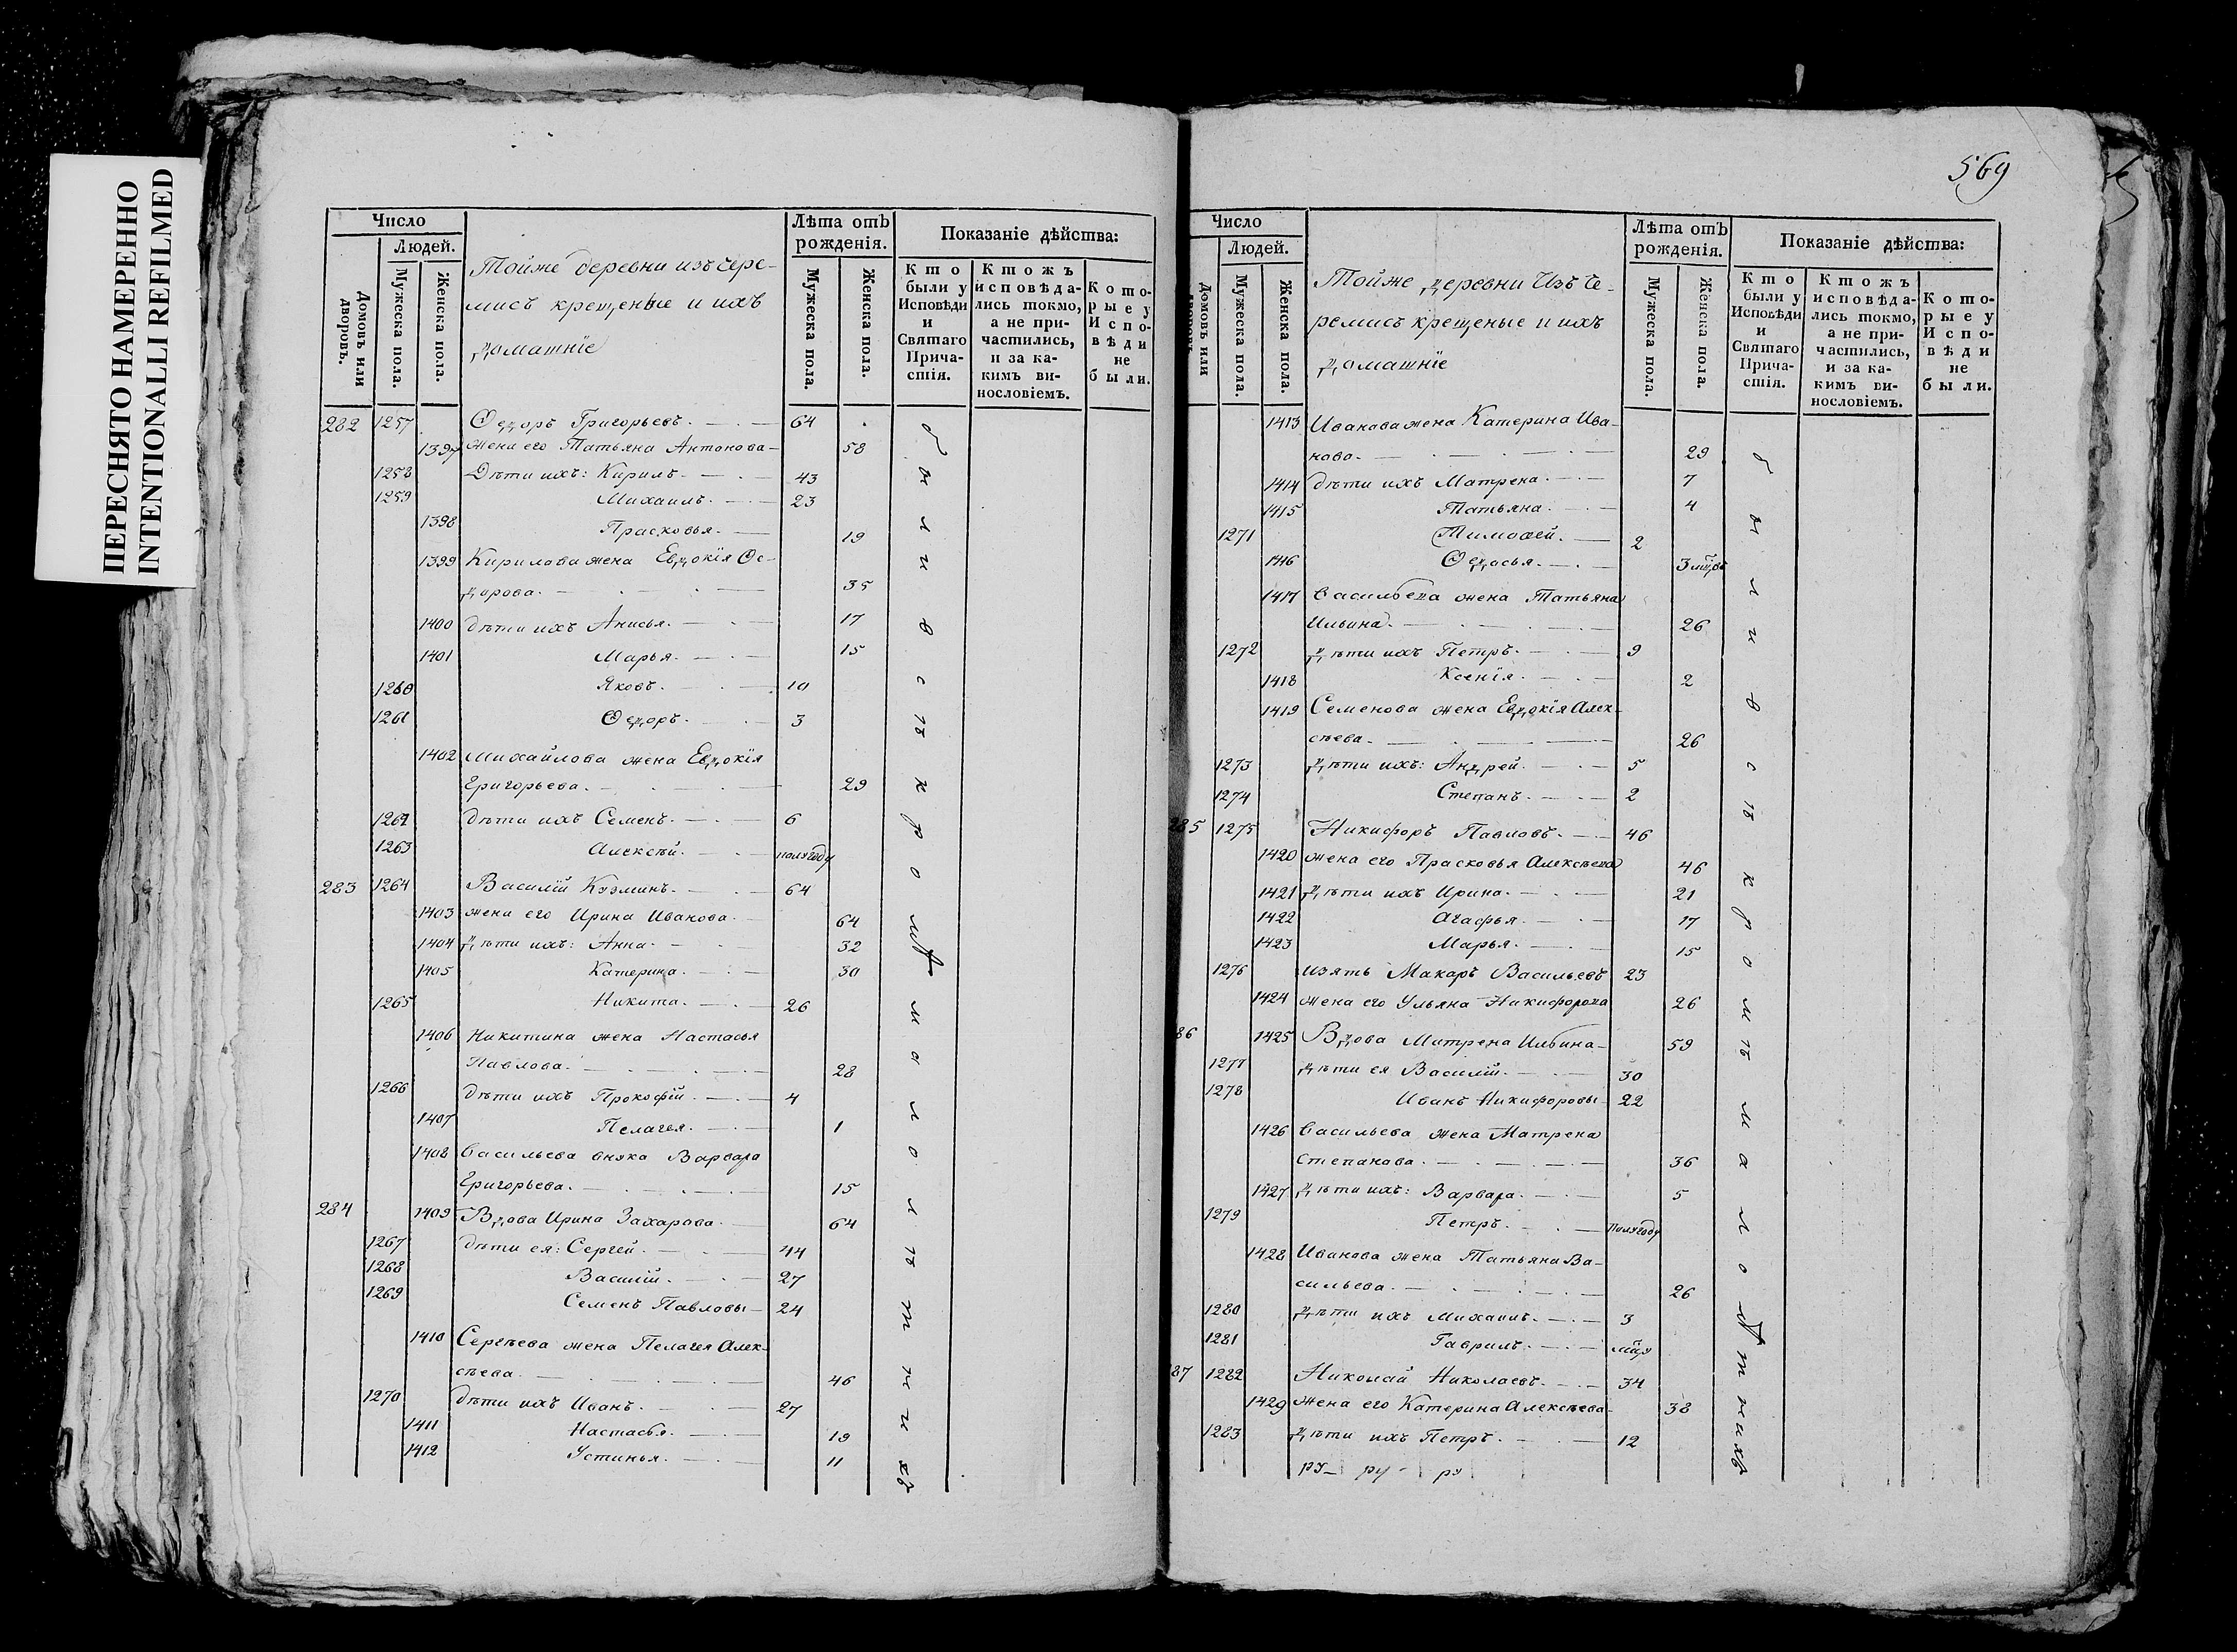 ПЕРЕСНЯТО НАМЕРЕННО
INTENTIONALLI REFILMED
Число
Людей.
Домовъ или дворовъ.
Мужеска пола.
Женска пола.
Тойже деревни изъ Чере-
мисъ крещеные и ихъ
домашнїе
Лѣта отъ рожденія.
Мужеска пола.
Женска пола.
Показаніе дѣйства:
Кто были у Исповѣди и Святаго Причастія.
Ктожъ исповѣдались токмо, а не причастились, и за какимъ винословіемъ.
Которые у Исповѣди не были.
282 1257 Ѳедоръ Григорьевъ. 64
1397 жена его Татьяна Антонова 58
1258 Дѣти ихъ: Кирилъ. 43
1259 Михаилъ. 23
1398 Прасковья. 19
1399 Кирилова жена Евдокїя Ѳе-
дорова. 35
1400 дѣти ихъ Анисья. 17
1401 Марья. 15
1260 Яковъ. 10
1261 Ѳедоръ. 3
1402 Михайлова жена Евдокїя
Григорьева. 29
1262 дѣти ихъ Семенъ. 6
1263 Алексѣй. полугоду
283 1264 Василїй Кузминъ. 64
1403 жена его Ирина Иванова. 64
1404 дѣти ихъ: Анна. 32
1405 Катерина. 30
1265 Никита. 26
1406 Никитина жена Настасья
Павлова. 28
1266 дѣти ихъ Прокофїй. 4
1407 Пелагея. 1
1408 Васильева внука Варвара
Григорьева. 15
284 1409 Вдова Ирина Захарова. 64
1267 дѣти ея: Сергей. 44
1268 Василїй. 27
1269 Семенъ Павловы 24
1410 Сергѣева жена Пелагея Алек-
сѣева. 46
1270 дѣти ихъ Иванъ. 27
1411 Настасья. 19
1412 Устинья. 11
были
въ
569
Число
Людей.
Домовъ или дворовъ.
Мужеска пола.
Женска пола.
Тойже деревни Изъ Че-
ремисъ крещеные и ихъ
домашнїе
Лѣта отъ рожденія.
Мужеска пола.
Женска пола.
Показаніе дѣйства:
Кто были у Исповѣди и Святаго Причастія.
Ктожъ исповѣдались токмо, а не причастились, и за какимъ винословіемъ.
Которые у Исповѣди не были.
1413 Иванова жена Катерина Ива-
нова. 29
1414 дѣти ихъ Матрена. 7
1415 Татьяна. 4
1271 Тимоѳей. 2
1416 Ѳедосья. 3 мцы
1417 Васильева жена Татьяна
Ильина. 26
1272 дѣти ихъ Петръ. 9
1418 Ксенїя. 2
1419 Семенова жена Евдокїя Алек-
сѣева. 26
1273 дѣти ихъ: Андрей. 5
1274 Степанъ. 2
285 1275 Никифоръ Павловъ. 46
1420 жена его Прасковья Алексѣева 46
1421 дѣти ихъ Ирина. 21
1422 Агафья. 17
1423 Марья. 15
1276 изять Макаръ Васильевъ 23
1424 жена его Ульяна Никифорова 26
86 1425 Вдова Матрена Ильина 59
1277 дѣти ея Василїй. 30
1278 Иванъ Никифоровы 22
1426 Васильева жена Матрена
Степанова. 36
1427 дѣти ихъ: Варвара. 5
1279 Петръ. полугоду
1428 Иванова жена Татьяна Ва-
сильева. 26
1280 дѣти ихъ Михаилъ. 3
1281 Гаврилъ. мцъ
87 1282 Николай Николаевъ. 34
1429 жена его Катерина Алексѣева 38
1283 дѣти ихъ Петръ. 12
ру ру ру
были
въ